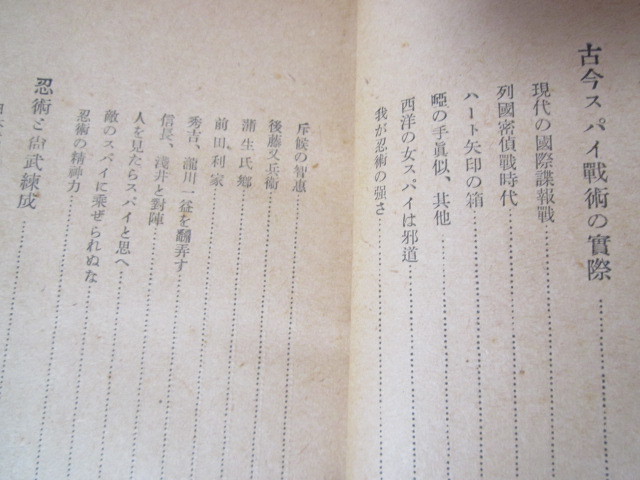 古今スパイ戰術の實際
現代の國際諜報戰
列國密偵戰時代
ハート矢印の箱
啞の手眞似、其他
西洋の女スパイは邪道
我が忍術の强さ
斥候の智惠
後藤又兵衞
蒲生氏鄕
前田利家
秀吉、瀧川一益を翻弄す
信長、淺井と對陣
人を見たらスパイと思へ
敵のスパイに乘ぜられぬな
忍術の精神力
忍術と尙武練成